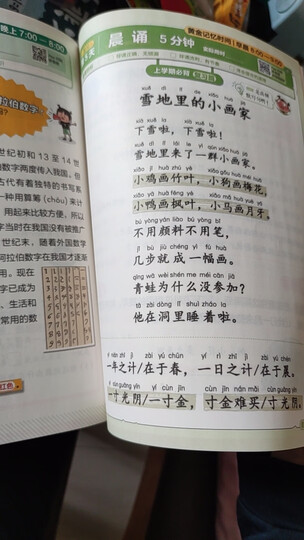 晚上 7:00 — 8:00
拉伯数字
世纪初和 13 至 14 世
数字两度传入我国，但
古代有着独特的书写系
一种用算筹（chóu）来计
用起来比较方便，所以
当时在我国没有被推广
世纪末，随着外国数学
阿拉伯数字在我国才逐渐
用。现在
字已成为
、生活和
常用的数
红色
晨诵 5分钟
黄金记忆时间1
上学期必背
雪地里的小画家
xià xuě la xià xuě la
下雪啦，下雪啦！
雪地里来了一群小画家。
小鸡画竹叶，小狗画梅花，
小鸭画枫叶，小马画月牙。
bú yòng yán liào bú yòng bǐ
不用颜料不用笔，
jǐ bù jiù chéng yì fú huà
几步就成一幅画。
qīng wā wèi shén me méi cān jiā
青蛙为什么没参加？
tā zài dòng lǐ shuì zháo la
他在洞里睡着啦。
yì nián zhī jì zài yú chūn yí rì zhī jì zài yú chén
一年之计/在于春，一日之计/在于晨。
yí cùn guāng yīn yí cùn jīn cùn jīn nán mǎi cùn guāng yīn
一寸光阴/一寸金，寸金难买/寸光阴。